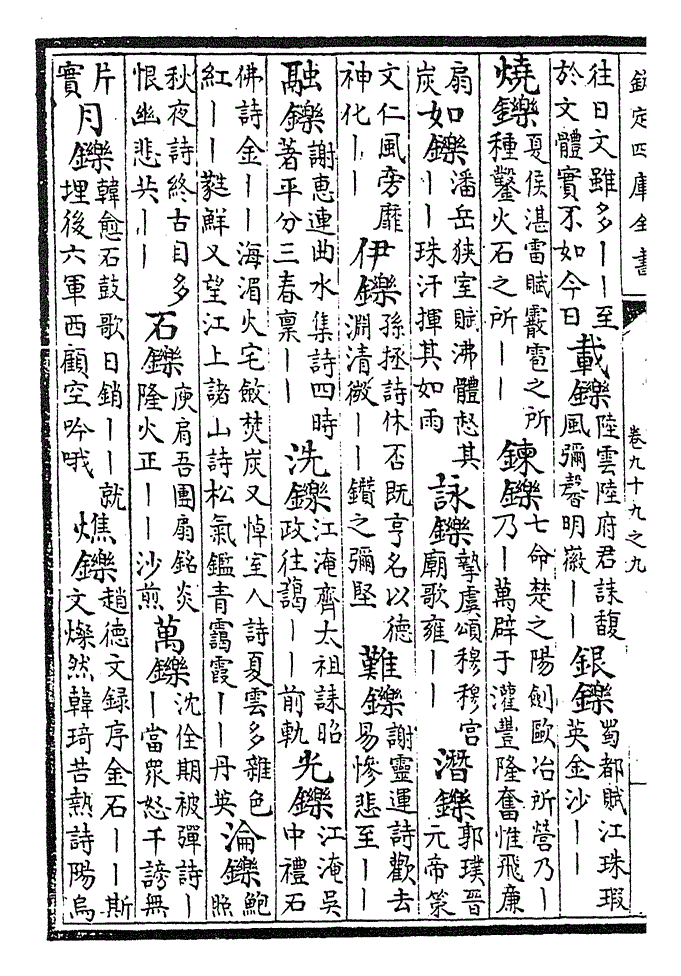 欽定四庫全書 卷九十九之九
往日文雖多||至於文體實不如今日 載鑠 陸雲陸府君誄馥風彌馨明徽|| 銀鑠 蜀都賦江珠瑕英金沙||
燒鑠 夏侯湛雷賦霰雹之所種鑿火石之所|| 鍊鑠 七命楚之陽劍歐冶所營乃|乃|萬辟于灌豐隆奮惟飛廉
扇炭 如鑠 潘岳狹室賦沸體怒其||珠汗揮其如雨 詠鑠 摯虞頌穆穆宮廟歌雍|| 潛鑠 郭璞晉元帝策
文仁風旁靡神化|| 伊鑠 孫拯詩休否既亨名以德淵清徽||鑽之彌堅 難鑠 謝靈運詩歡去易慘悲至||
融鑠 謝惠連曲水集詩四時著平分三春禀|| 洗鑠 江淹齊太祖誄昭政往藹||前軌 光鑠 江淹吳中禮石
佛詩金||海湄火宅斂焚炭又悼室人詩夏雲多雜色紅||蕤鮮又望江上諸山詩松氣鑑青靄霞||丹英 淪鑠 鮑照
秋夜詩終古自多恨幽悲共|| 石鑠 庾肩吾團扇銘炎隆火正||沙煎 萬鑠 沈佺期被彈詩||當眾怒千謗無
片實 月鑠 韓愈石鼓歌日銷||就埋後六軍西顧空吟哦 燋鑠 趙德文録序金石||斯文燦然韓琦苦熱詩陽烏